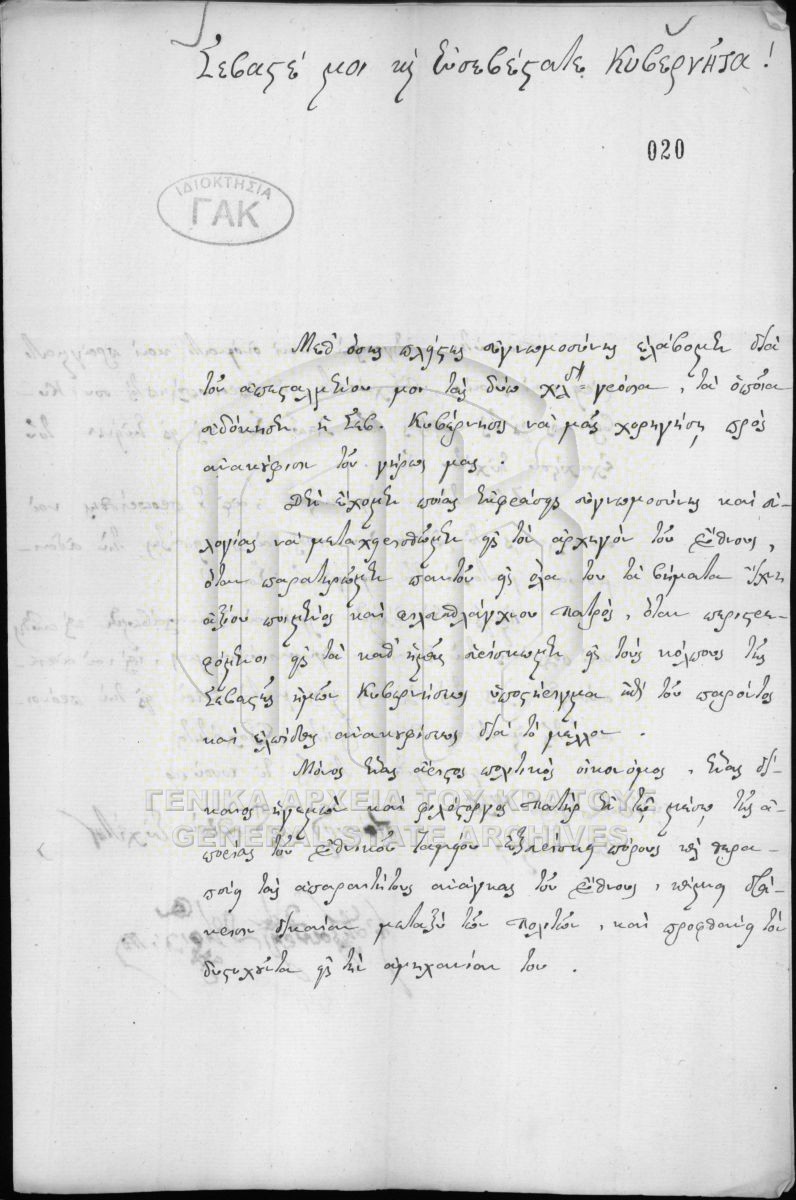 Σεβαστέ μοι κỳ Εὐσεβέστατε Κυβερνῆτα!
020
ΙΔΙΟΚΤΗΣΙΑ
ΓΑΚ
Μεθ' ὅσης πλήρης εὐγνωμοσύνης ἐλάβομεν διὰ
τοῦ ἀπεσταλμένου μοι τὰς δύω χιλ: γρόσια, τὰ ὁποῖα
εὐδόκησεν ἡ Σεβ. Κυβέρνησις νὰ μᾶς χορηγήσῃ πρὸς
ἀνακούφισιν τοῦ γήρως μας.
Δὲν ἔχομεν ποίας ἐκφράσεις εὐγνωμοσύνης καὶ εὐ-
λογίας νὰ μεταχειρισθῶμεν εἰς τὸν ἀρχηγὸν τοῦ Ἔθνους,
ὅταν παρατηρῶμεν παντοῦ εἰς ὅλα του τὰ βήματα ἴχνη
ἀξίου ποιμένος καὶ φιλευσπλάγχνου πατρός, ὅταν περιστρε-
φόμενοι εἰς τὰ καθ' ἡμᾶς εὑρίσκωμεν εἰς τοὺς κόλπους τῆς
Σεβαστῆς ἡμῶν Κυβερνήσεως ὑποστήριγμα ἐπὶ τοῦ παρόντος
καὶ ἐλπίδας ἀνακουφίσεως διὰ τὸ μέλλον.
Μόνος ἕνας ἄριστος πολιτικὸς οἰκονόμος, ἕνας δί-
καιος ἡγεμὼν καὶ φιλόστοργος πατὴρ ἐν τῷ μέσῳ τῆς ἀ-
πορίας τοῦ Ἐθνικοῦ Ταμείου ἐξευρίσκει πόρους νὰ θερα-
πεύῃ τὰς ἀπαραιτήτους ἀνάγκας τοῦ Ἔθνους, κάμνει διά-
κρισιν δικαίαν μεταξὺ τῶν πολιτῶν, καὶ προφθάνει τὸν
δυστυχοῦντα εἰς τὴν ἀμηχανίαν του.
ΓΕΝΙΚΑ ΑΡΧΕΙΑ ΤΟΥ ΚΡΑΤΟΥΣ
GENERAL STATE ARCHIVES